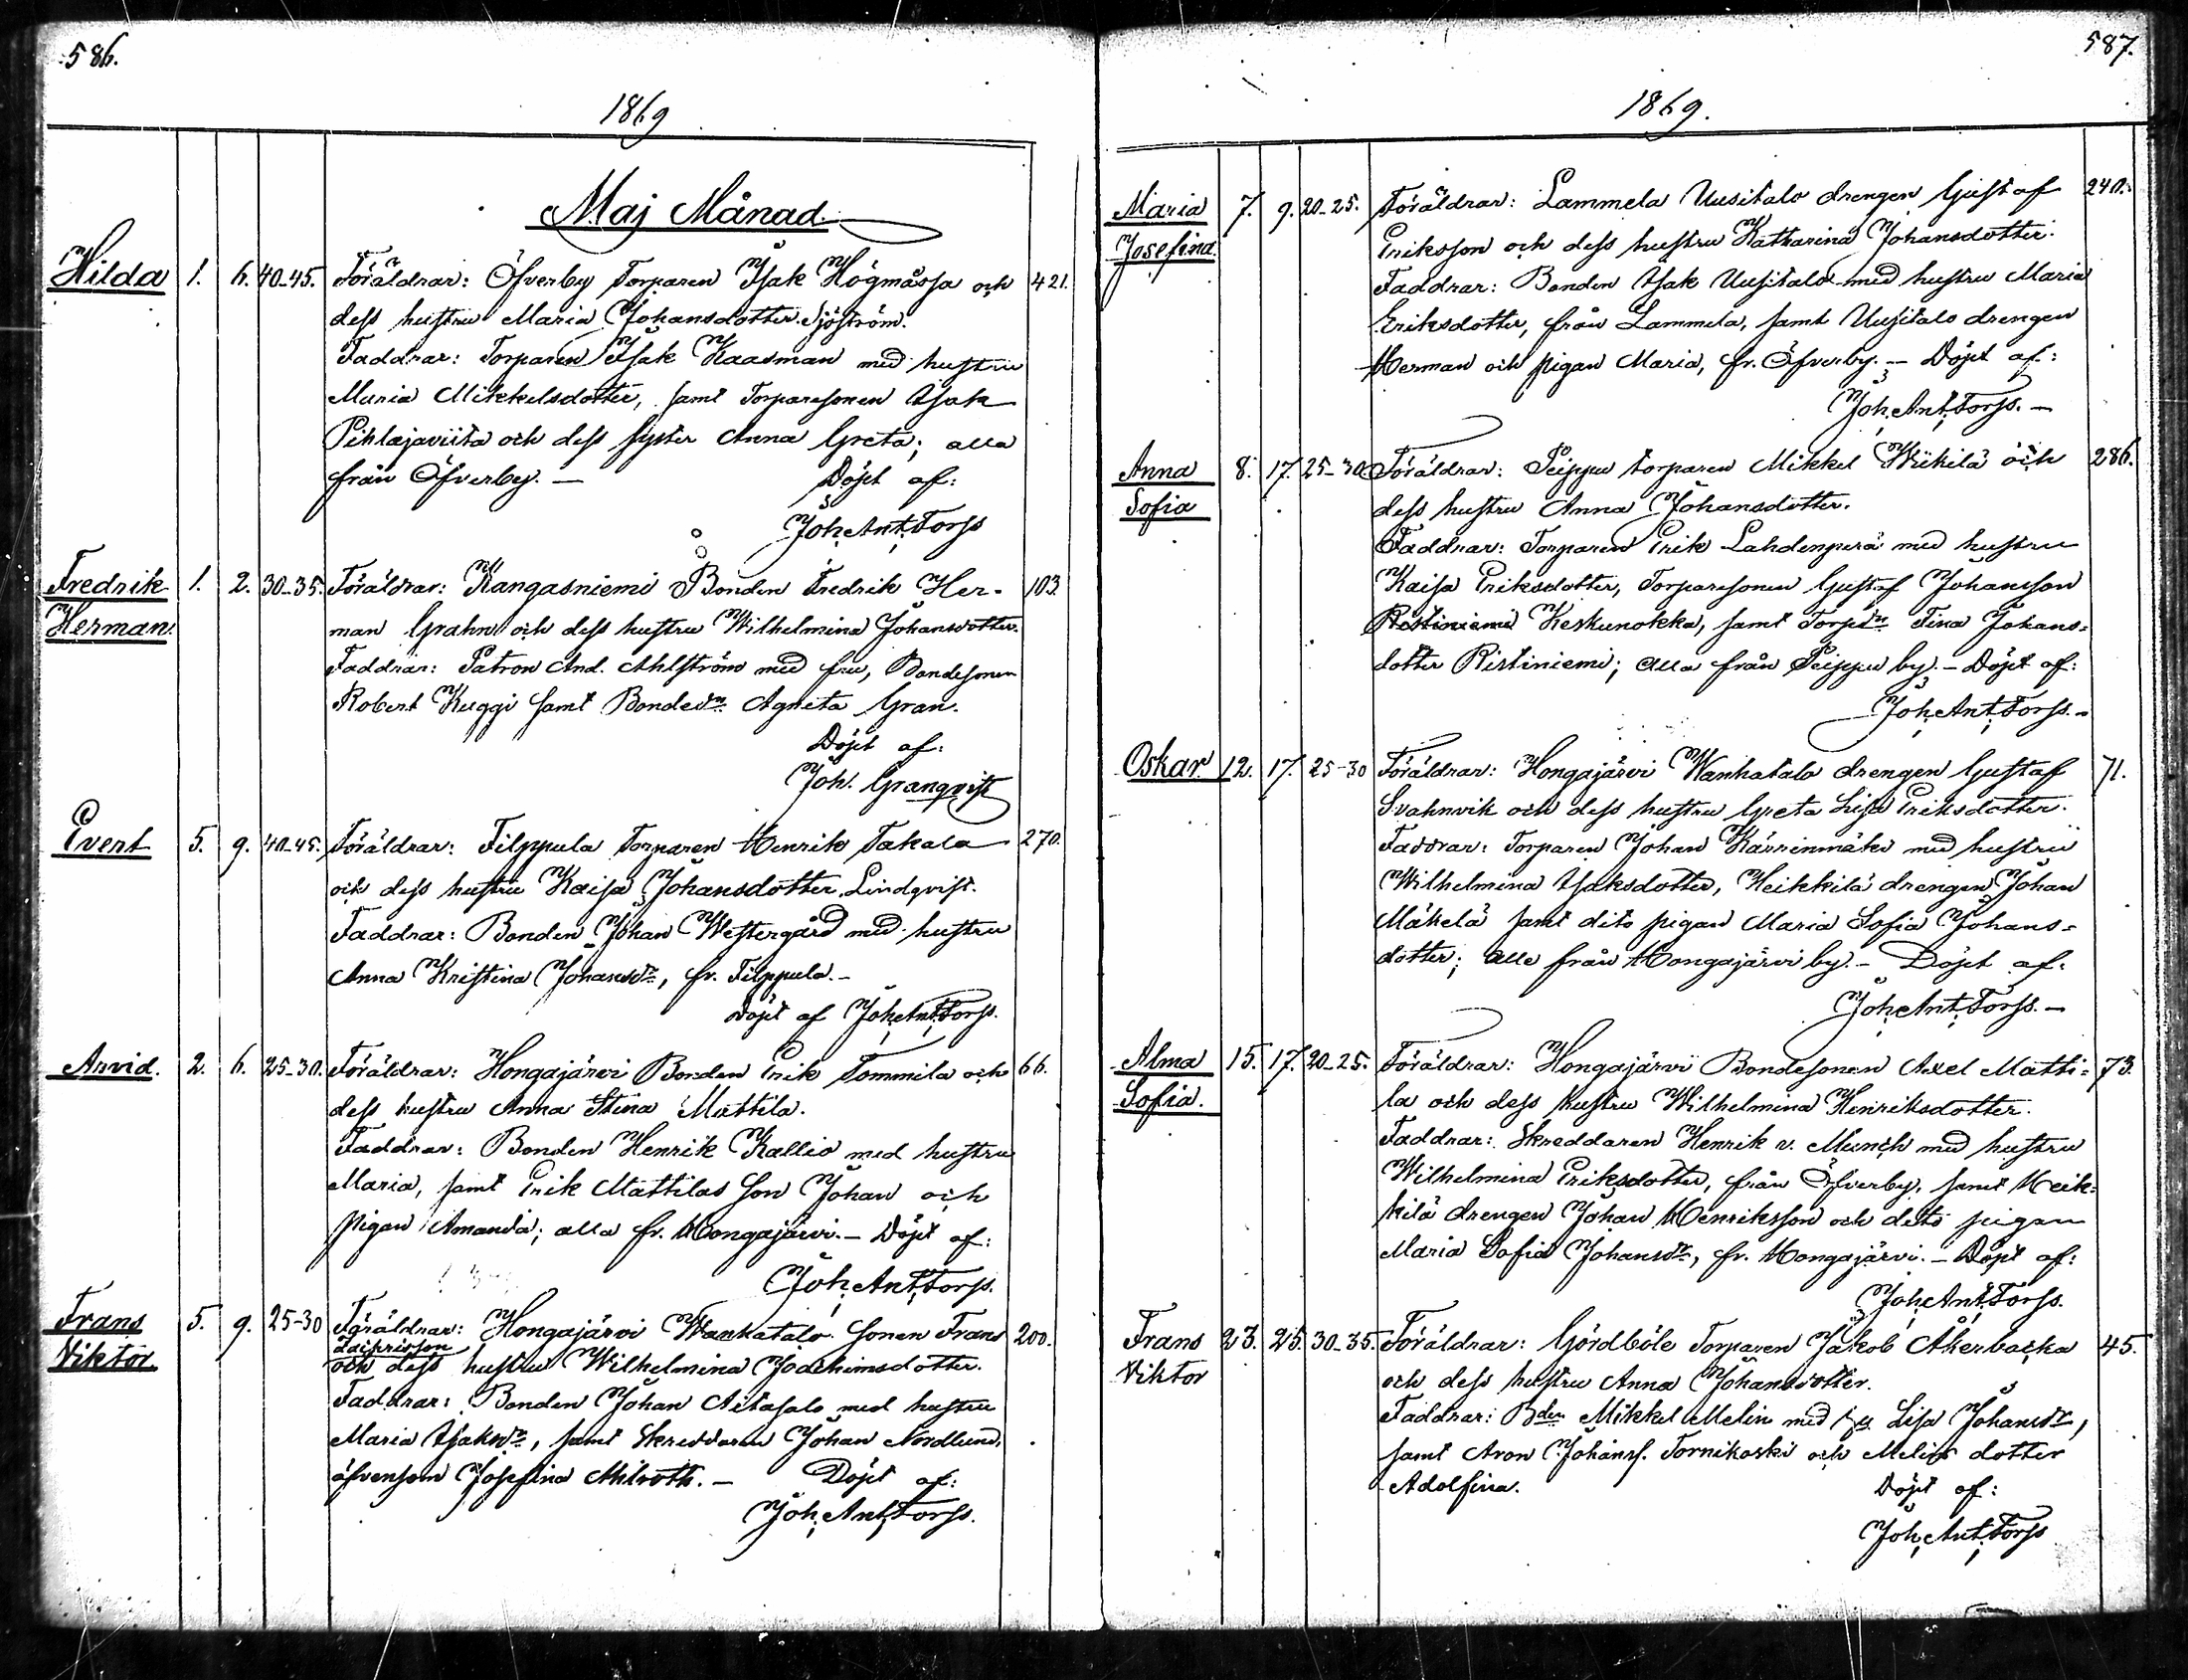 586.
1869
Maj Månad
Hilda 1. 6. 40-45. Föräldrar: Öfverby Torparen Isak Högmåssa och 421.
dess hustru Maria Johansdotter Sjöström.
Faddrar: Torparen Isak Kaasman med hustru
Maria Mikkelsdotter, samt Torparesonen Isak
Pihlajaviita och dess syster Anna Greta; alla
från Öfverby. — Döpt af:
Joh. Ant. Forss
Fredrik 1. 2. 30-35. Föräldrar: Kangasniemi Bonden Fredrik Her- 103
Herman. man Grahn och dess hustru Wilhelmina Johansdotter.
Faddrar: Patron And. Ahlström med fru, Bondesonen
Robert Kuggi samt Bondedr. Agneta Gran.
Döpt af:
Joh. Granqvist
Evert 5. 9. 40-45. Föräldrar: Filppula Torparen Henrik Takala 270.
och dess hustru Kaisa Johansdotter Lindqvist.
Faddrar: Bonden Johan Westergård med hustru
Anna Kristina Johansdr., fr. Filppula. —
Döpt af Joh. Ant. Forss.
Arvid. 2. 6. 25-30. Föräldrar: Hongajärvi Bonden Erik Tommila och 66.
dess hustru Anna Stina Mattila.
Faddrar: Bonden Henrik Kallio med hustru
Maria, samt Erik Mattilas son Johan och
pigan Amanda; alla fr. Hongajärvi. — Döpt af:
Joh. Ant. Forss.
Frans 5. 9. 25-30 Föräldrar: Hongajärvi Wanhatalo sonen Frans 200.
Viktor och dess hustru Wilhelmina Joachimsdotter.
Faddrar: Bonden Johan Aitasalo med hustru
Maria Isaksdr., samt Skreddaren Johan Nordlund,
äfvensom Josefina Ahlroth. — Döpt af:
Joh. Ant. Forss.
587.
1869.
Maria 7. 9. 20-25. Föräldrar: Lammela Uusitalo drengen Gustaf 240.
Josefina Eriksson och dess hustru Katharina Johansdotter.
Faddrar: Bonden Isak Uusitalo med hustru Maria
Eriksdotter, från Lammela, samt Uusitalo drengen
Herman och pigan Maria, fr. Öfverby. — Döpt af:
Joh. Ant. Forss. —
Anna 8. 17. 25-30 Föräldrar: Peippu torparen Mikkel Wiikilä och 286.
Sofia dess hustru Anna Johansdotter.
Faddrar: Torparen Erik Lahdenperä med hustru
Kaisa Eriksdotter, Torparesonen Gustaf Johansson
Keskunokka, samt Torpdr. Fina Johans-
dotter Ristiniemi; alla från Peippu by. — Döpt af:
Joh. Ant. Forss. —
Oskar 12. 17. 25-30 Föräldrar: Hongajärvi Wanhatalo drengen Gustaf 71.
Svahnvik och dess hustru Greta Lisa Eriksdotter.
Faddrar: Torparen Johan Kärrinmäki med hustru
Wilhelmina Isaksdotter, Heikkilä drengen Johan
Mäkelä samt dito pigan Maria Sofia Johans-
dotter; alle från Hongajärvi by. — Döpt af:
Joh. Ant. Forss. —
Alma 15. 17. 20-25. Föräldrar: Hongajärvi Bondesonen Axel Matti- 73.
Sofia. la och dess hustru Wilhelmina Henriksdotter.
Faddrar: Skreddaren Henrik v. Munch med hustru
Wilhelmina Eriksdotter, från Öfverby, samt Heik-
kilä drengen Johan Henriksson och dito pigan
Maria Sofia Johansdr., fr. Hongajärvi. — Döpt af:
Joh. Ant. Forss.
Frans 23. 25. 30-35. Föräldrar: Gördböle Torparen Jakob Åkerbacka 45.
Viktor och dess hustru Anna Johansdotter.
Faddrar: Bden Mikkel Melin med Lisa Johansdr.,
samt Aron Johanss. Tornikoski och Melins dotter
Adolfina. Döpt af:
Joh. Ant. Forss